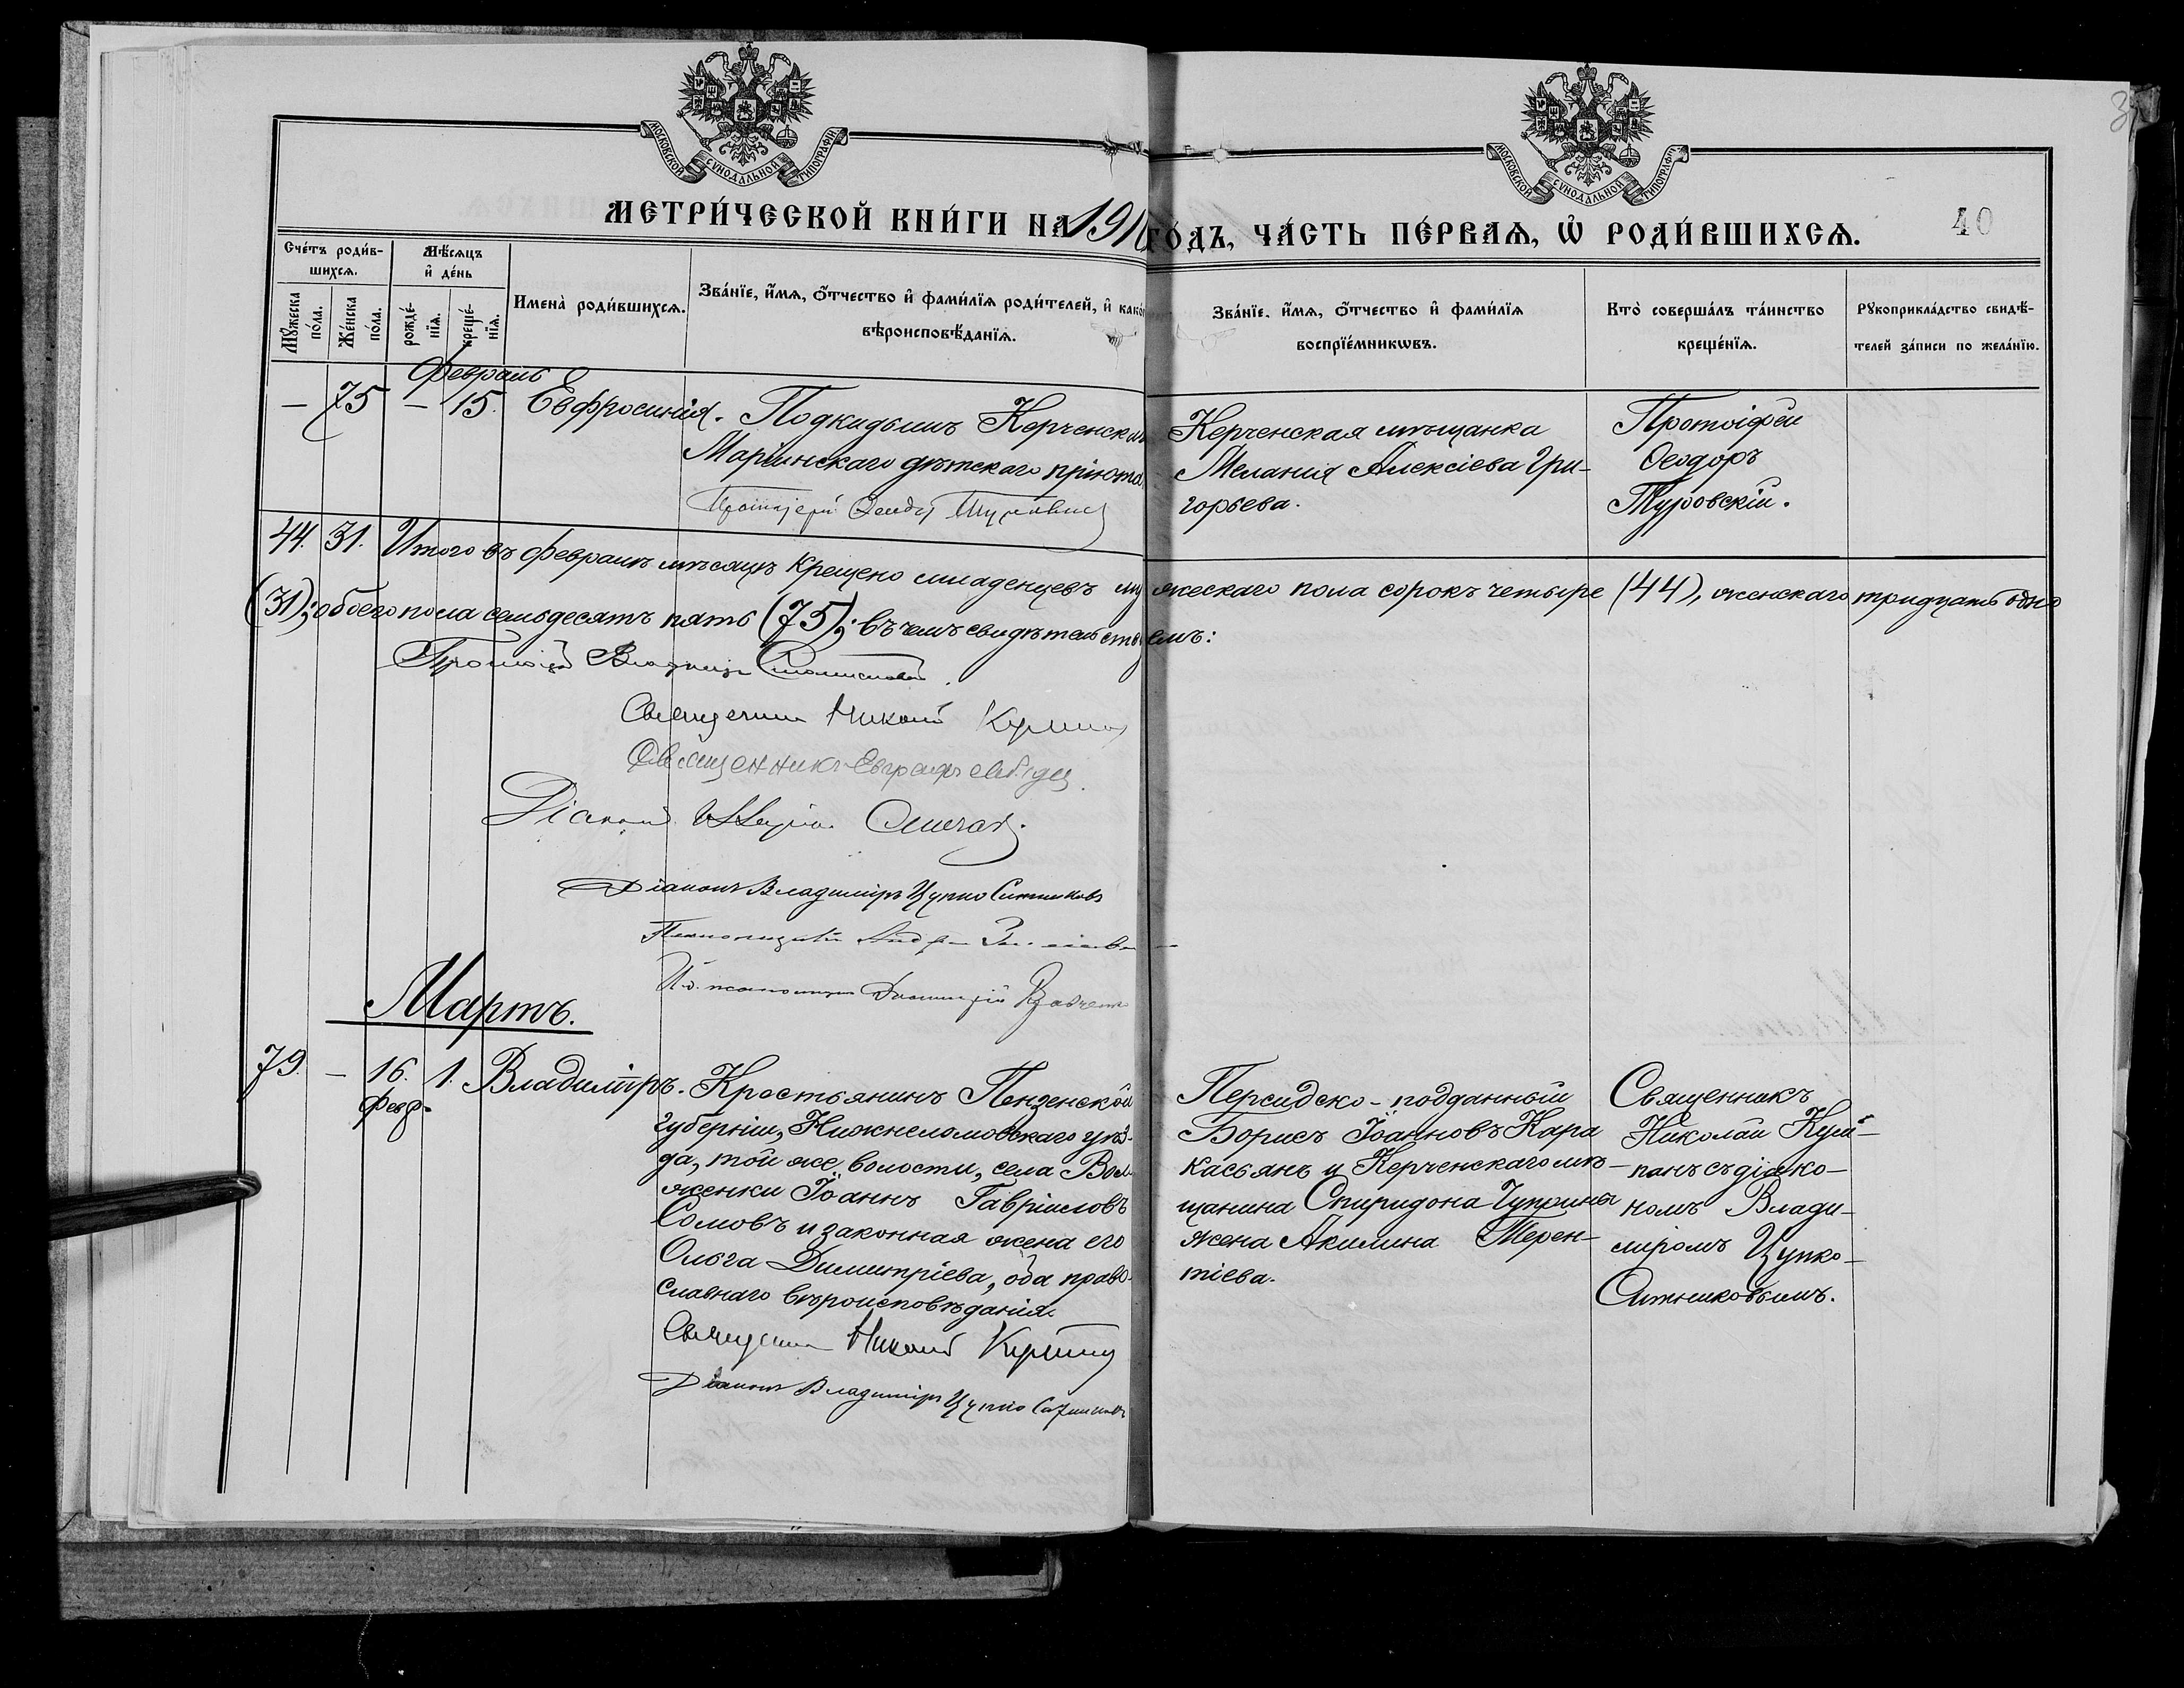 МОСКОВСКОЙ СѴНОДАЛЬНОЙ ТИПОГРАФІИ
МОСКОВСКОЙ СѴНОДАЛЬНОЙ ТИПОГРАФІИ
МЕТРИ́ЧЕСКОЙ КНИ́ГИ НА 191
ГО́ДЪ, ЧА́СТЬ ПЕ́РВАѦ, Ѡ҆ РОДИ́ВШИХСѦ.
40
Сче́тъ роди́в-
шихсѧ.
Мѣ́сѧцъ
и҆ де́нь
Мꙋ́жеска
по́ла.
Же́нска
по́ла.
рожде́-
нїѧ.
креще́-
нїѧ.
Имена̀ роди́вшихсѧ.
Зва́нїе, и҆́мѧ, ѻ҆́тчество и҆ фами́лїѧ роди́телей, и҆ како́
вѣроисповѣ́данїѧ.
Зва́нїе, и҆́мѧ, ѻ҆́тчество и҆ фами́лїѧ
воспрїе́мникѡвъ.
Кто̀ соверша́лъ та́инство
креще́нїѧ.
Рꙋкоприкла́дство свидѣ́-
телей за́писи по жела́нїю.
Февраль
— 75 — 15. Евфросинія. Подкидышъ Керченска
Маріинскаго дѣтскаго пріюта
Протоіерей Ѳеодор Туровскій
Керченская мѣщанка
Меланія Алексіева Гри-
горьева.
Протоіерей
Ѳеодоръ
Туровскій.
44. 31. Итого въ февралѣ мѣсяцѣ крещено младенцевъ мужескаго пола сорокъ четыре (44), женскаго тридцать одно
(31); обоего пола семьдесятъ пять (75); въ чемъ свидѣтельствуемъ:
Протоіерей
Священникъ Николай
Священникъ Евграфъ
Діаконъ
Діаконъ Владиміръ Цупко Ситниковъ
Псаломщикъ
И. д. псаломщика
Мартъ.
79. — 16. 1. Владиміръ. Крестьянинъ Пензенской
Февр.
губерніи, Нижнеломовскаго уѣз-
да, той же волости, села
Іоаннъ Гавріиловъ
Сомовъ и законная жена его
Ольга Димитріева, оба право-
славнаго вѣроисповѣданія.
Священникъ Николай
Діаконъ Владиміръ Цупко Ситниковъ
Персидско-подданный
Борисъ Іоанновъ Кара
касьянъ и Керченскаго мѣ-
щанина Спиридона Чуприны
жена Акилина Терен-
тіева.
Священникъ
Николай Кум-
панъ съ діако-
номъ Влади-
міромъ Цупко-
Ситниковымъ.